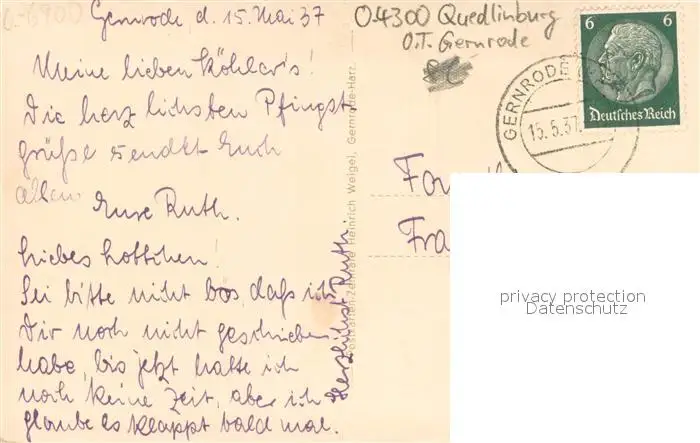 Gernrode, d. 15. Mai 37
Meine lieben Köhler's!
Die herzlichsten Pfingst-
grüße sendet Euch
allen Eure Ruth.
Liebes Lottchen!
Sei bitte nicht bös, daß ich
Dir noch nicht geschrieben
habe, bis jetzt hatte ich
noch keine Zeit, aber ich
glaube es klappt bald mal.
Herzlichst Ruth.
Postkarten-Zentrale Heinrich Weigel, Gernrode-Harz.
O-4300 Quedlinburg
O.T. Gernrode
GERNRODE
15.5.37
6 6
Deutsches Reich
Fam
Fra
privacy protection
Datenschutz